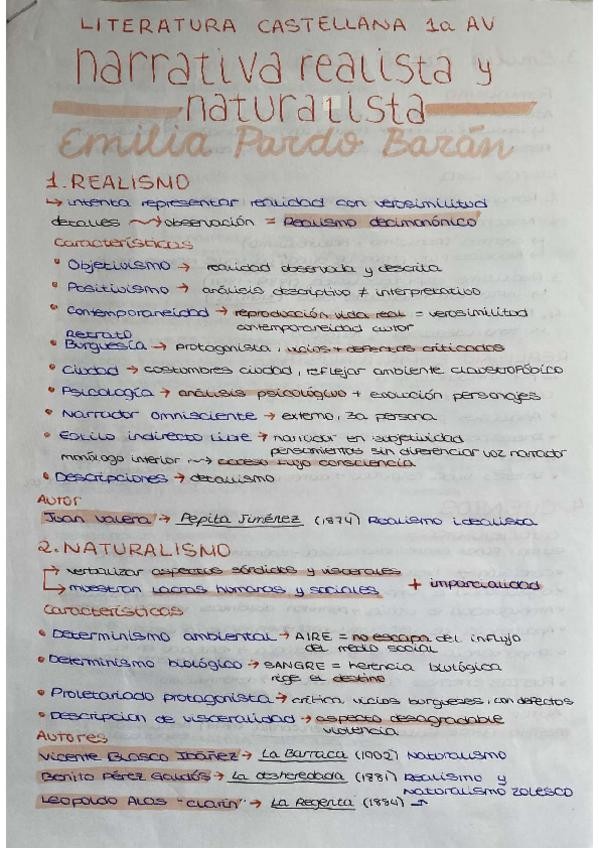 LITERATURA CASTELLANA 1a AV
narrativa realista y
naturalista
Emilia Pardo Bazán
1. REALISMO
↳ intenta representar realidad con verosimilitud
detalles ⤳ observación = Realismo decimonónico
Características
• Objetivismo → realidad observada y descrita
• Positivismo → análisis descriptivo ≠ interpretativo
• Contemporaneidad → reproducción vida real = verosimilitud
contemporaneidad autor
Retrato
• Burguesía → protagonista, vicios + defectos criticados
• Ciudad → costumbres ciudad, reflejar ambiente claustrofóbico
• Psicología → análisis psicológico + evolución personajes
• Narrador omnisciente → externo, 3a persona
• Estilo indirecto libre → narrador en subjetividad
pensamientos sin diferenciar voz narrador
monólogo interior ⤳ acceso flujo consciencia
• Descripciones → detallismo
Autor
Juan Valera → Pepita Jiménez (1874) Realismo idealista
2. NATURALISMO
→ verbalizar aspectos sórdidos y viscerales
→ muestran lacras humanas y sociales + imparcialidad
Características
• Determinismo ambiental → AIRE = no escapa del influjo
del medio social
• Determinismo biológico → SANGRE = herencia biológica
rige el destino
• Proletariado protagonista → critica vicios burgueses, con defectos
• Descripcion de visceralidad → aspecto desagradable
violencia
Autores
Vicente Blasco Ibáñez → La Barraca (1902) Naturalismo
Benito Pérez Galdós → La desheredada (1881) Realismo y
Naturalismo zolesco
Leopoldo Alas "Clarín" → La Regenta (1884)